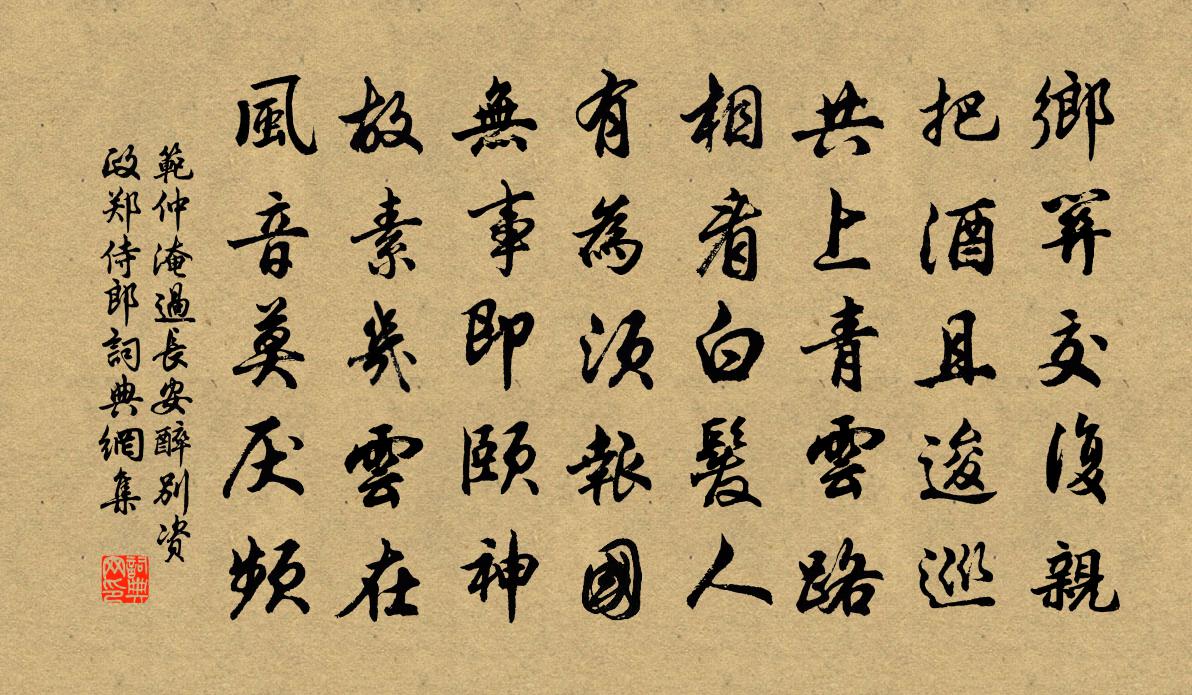 鄉關交復親
把酒且逡巡
共上青雲路
相看白髮人
有為須報國
無事即頤神
故素幾雲在
風音莫厌頻
範仲淹過長安醉別资
政郑侍郎詞典網集
詞典网印